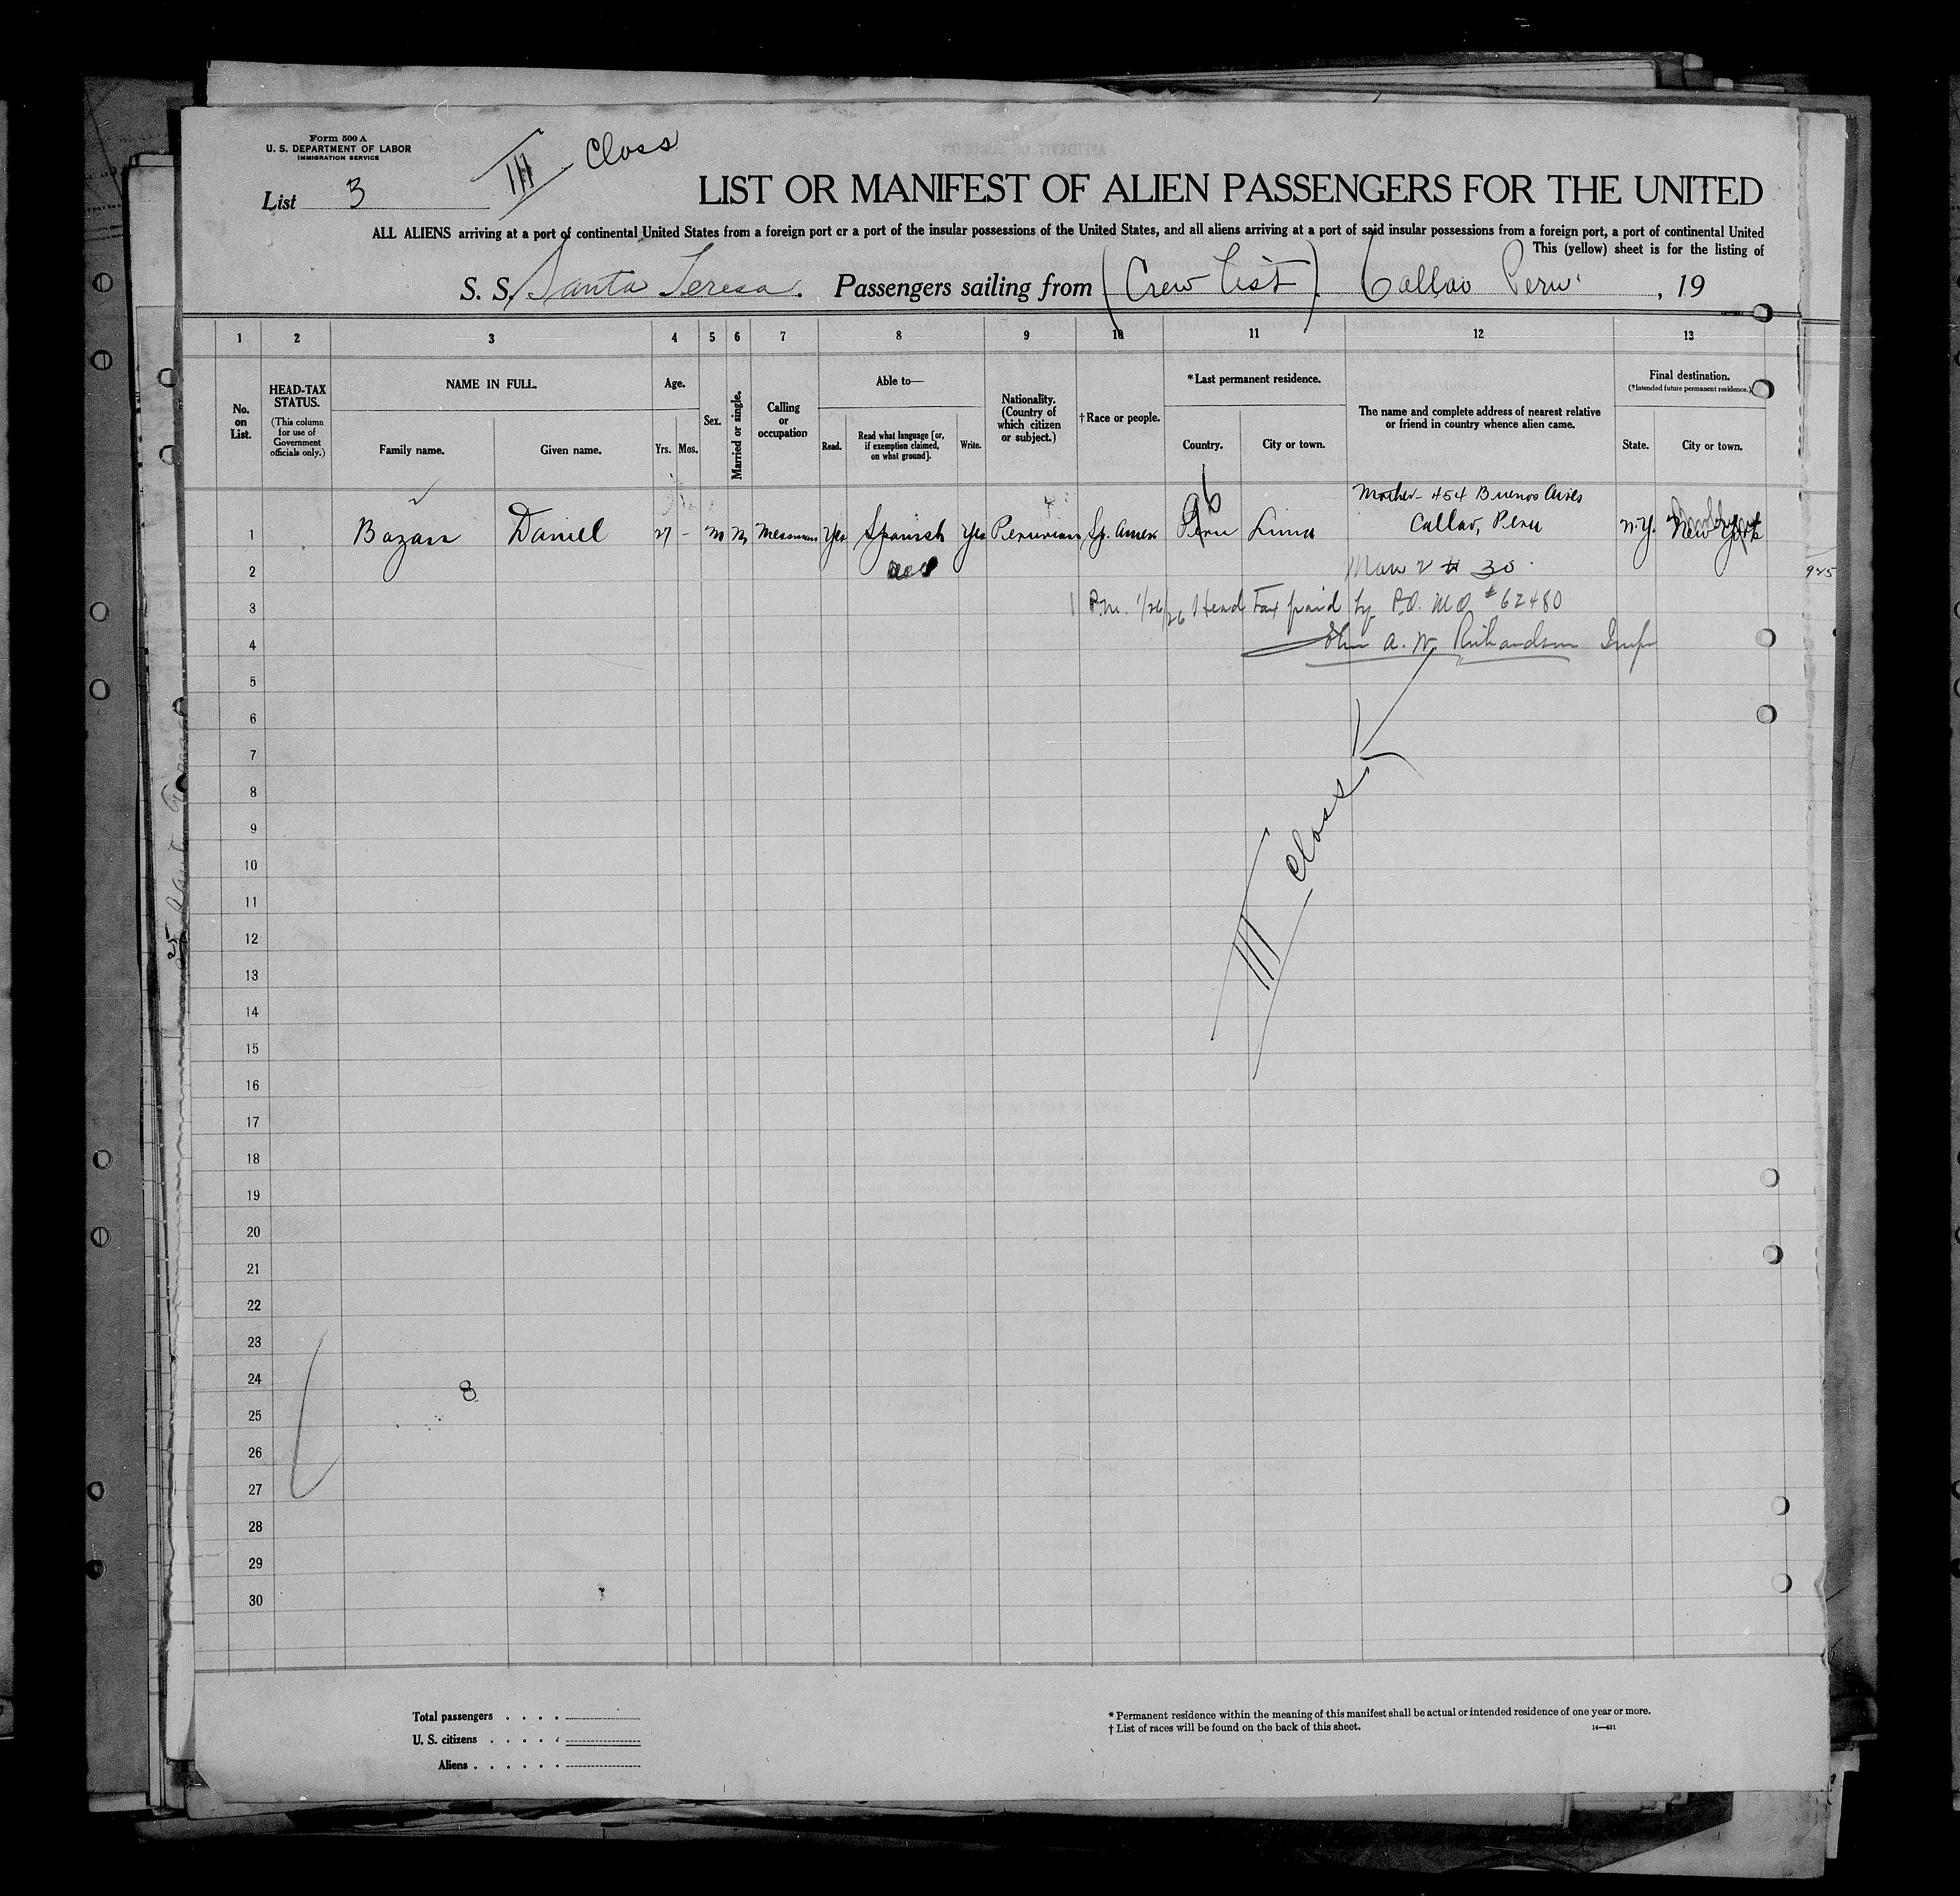 Form 500 A
U. S. DEPARTMENT OF LABOR
IMMIGRATION SERVICE
III Class
List 3
LIST OR MANIFEST OF ALIEN PASSENGERS FOR THE UNITED
ALL ALIENS arriving at a port of continental United States from a foreign port or a port of the insular possessions of the United States, and all aliens arriving at a port of said insular possessions from a foreign port, a port of continental United
This (yellow) sheet is for the listing of
S. S. Santa Teresa. Passengers sailing from (Crew List) Callao Peru , 19
1 2 3 4 5 6 7 8 9 10 11 12 13
No. on List.
HEAD-TAX STATUS.
(This column for use of Government officials only.)
NAME IN FULL.
Family name. Given name.
Age.
Yrs. Mos.
Sex.
Married or single.
Calling or occupation
Able to—
Read. Read what language [or, if exemption claimed, on what ground]. Write.
Nationality. (Country of which citizen or subject.)
†Race or people.
*Last permanent residence.
Country. City or town.
The name and complete address of nearest relative or friend in country whence alien came.
Final destination.
(*Intended future permanent residence.)
State. City or town.
Mother - 454 Buenos Aires
1 Bazan Daniel 27 - M M Messman Yes Spanish Yes Peruvian Sp. Amer Peru Lima Callao, Peru N.Y. New York
2
3 P.M. 1/26/26 Head Tax paid by P.O. M.O. #62480
4 John A. W. Richardson Insp
5
6
7
8
9
10
11
III Class
12
13
14
15
16
17
18
19
20
21
22
23
24
8
25
26
27
28
29
30
Total passengers . . . .
U. S. citizens . . . . .
Aliens . . . . . .
* Permanent residence within the meaning of this manifest shall be actual or intended residence of one year or more.
† List of races will be found on the back of this sheet. 14—431